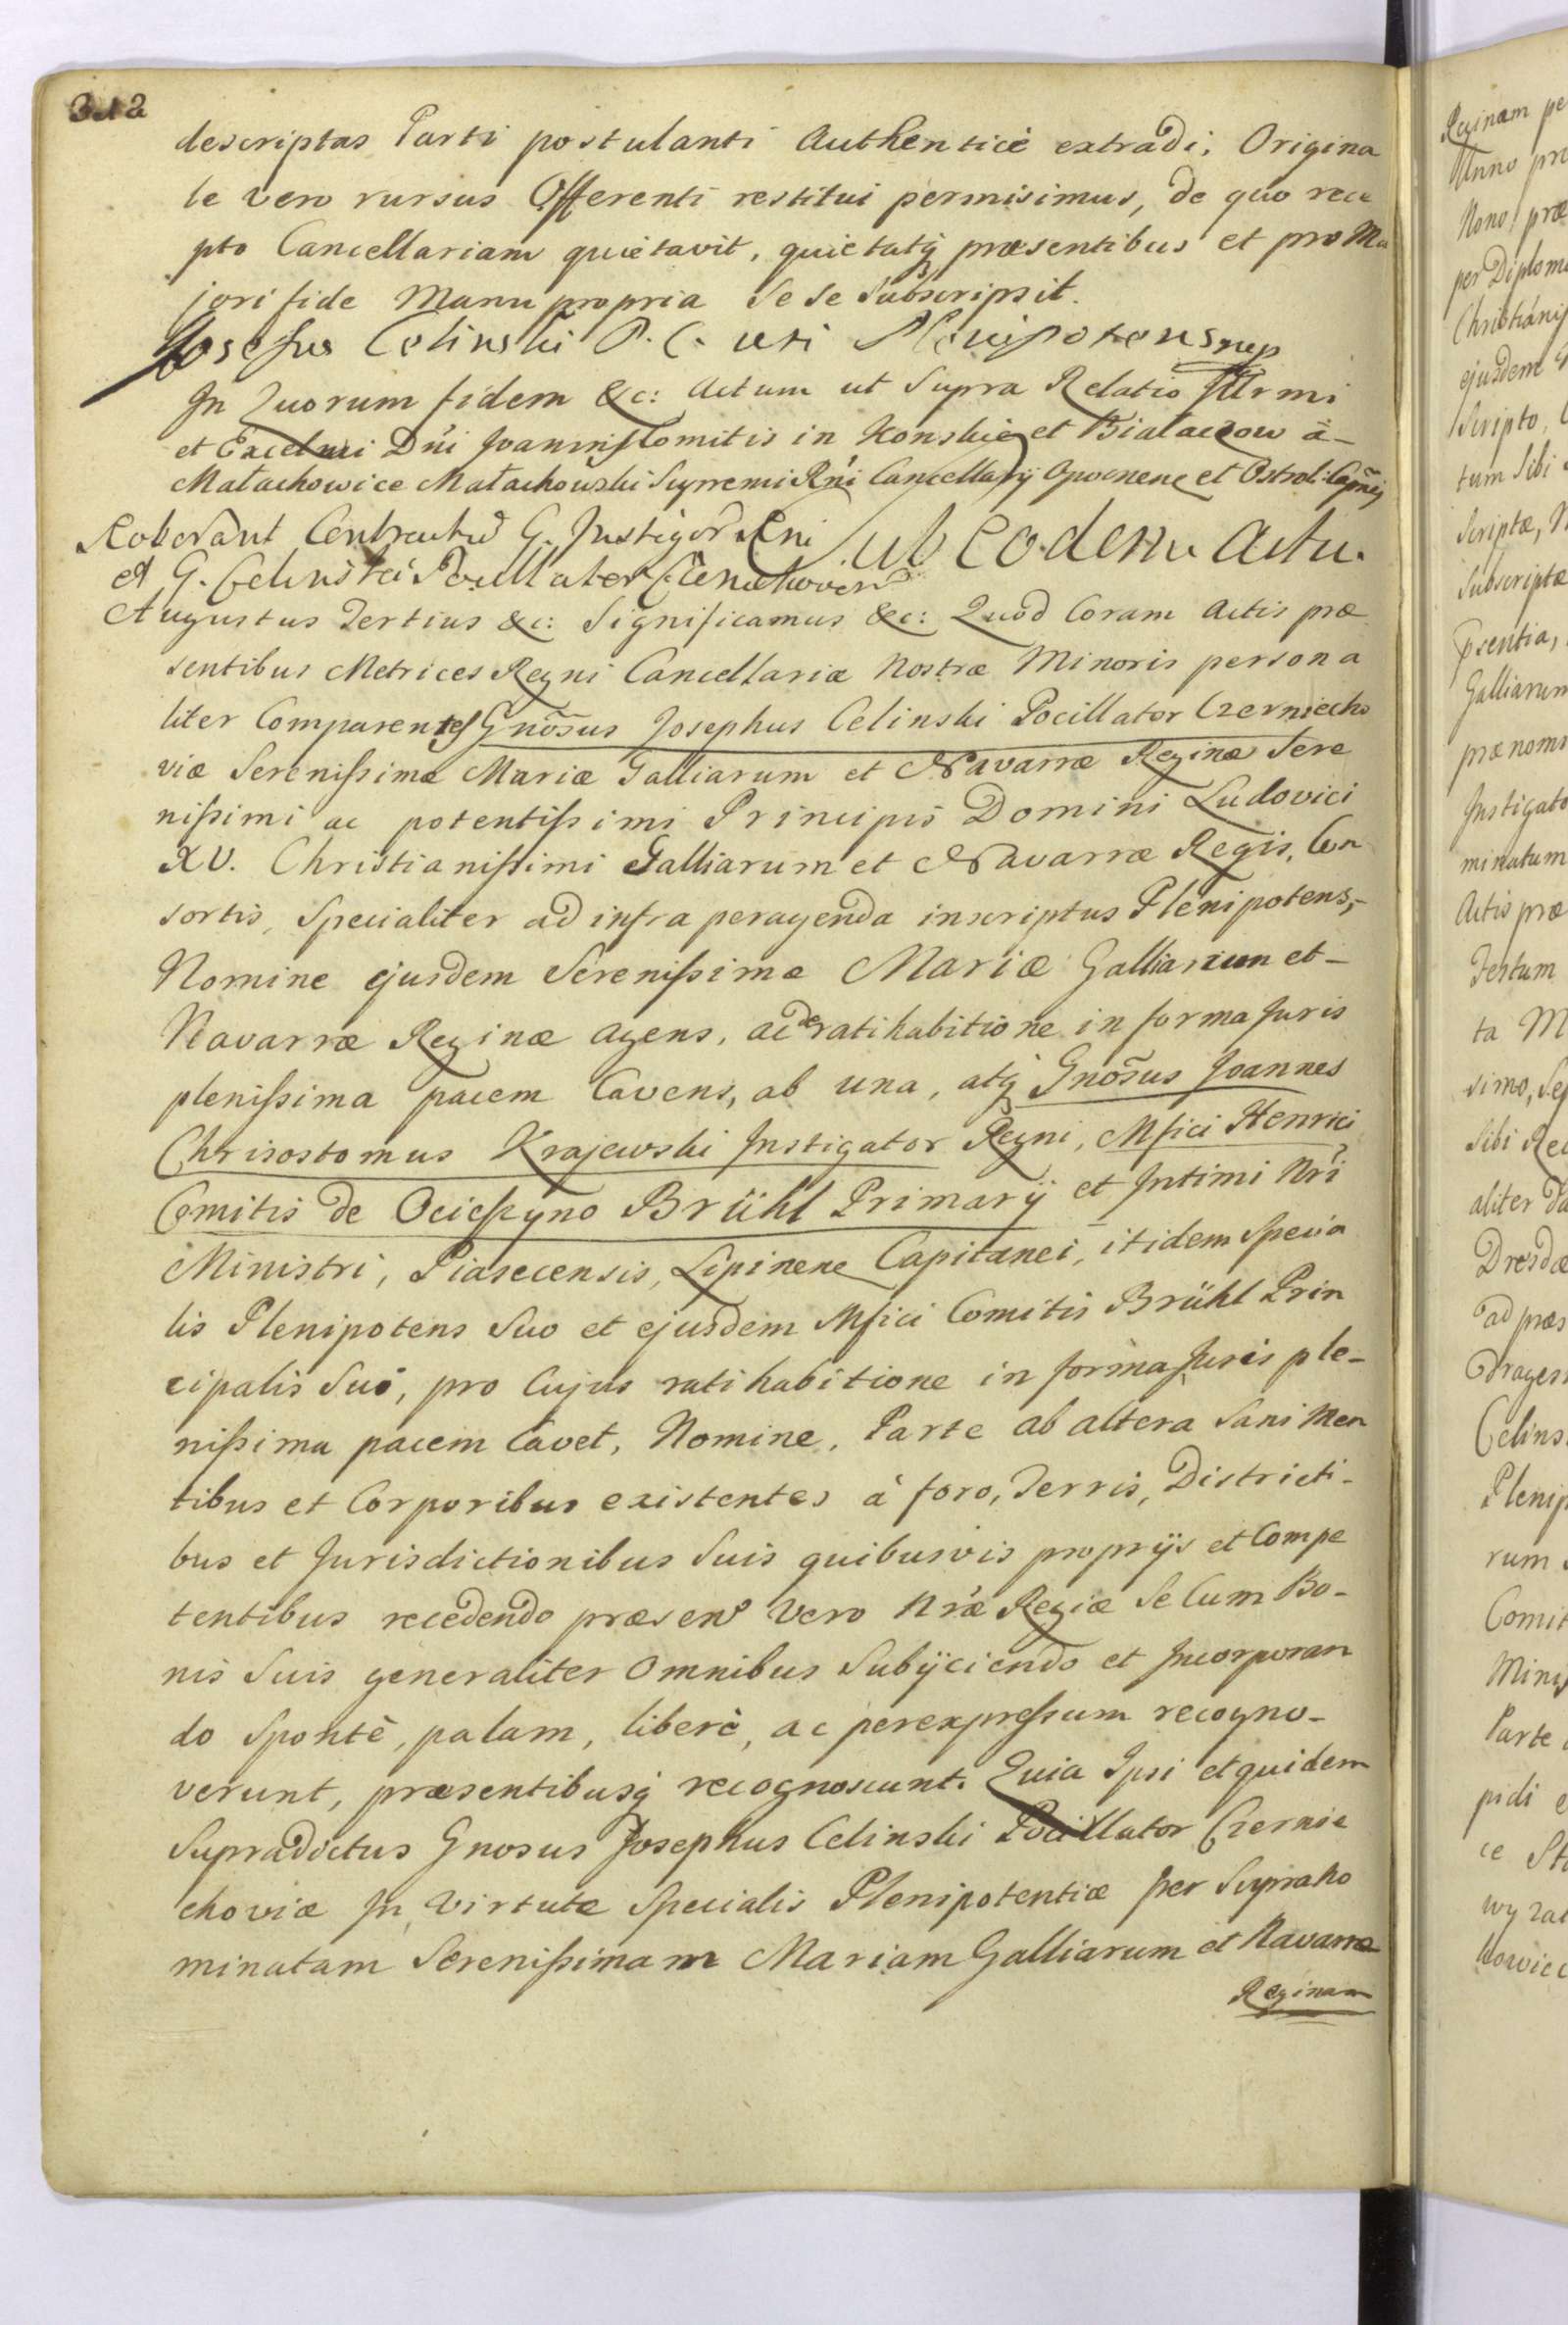 312
descriptas Parti postulanti Authenticè extradi; Origina
le vero rursus Offerenti restitui permisimus, de quo rece
pto Cancellariam quietavit, quietatq̃ præsentibus et pro Ma
jori fide Manu propria Se Se Subscripsit.
Josefus Celinski P. C. uti Plenipotens mp
In Quorum fidem &c: Actum ut Supra Relatio Illrmi
et Excelmi Dn̄i Joannis Comitis in Konskie et Białaczow à-
Małachowice Małachowski Supremi Rn̄i Cancellarij Opocnene et Ostrol: Cap̄nei
Roborant Contractus G. Instigor Rni
Sub eodem Actu.
et G. Celinski Pocillator Czerniechovien
Augustus Tertius &c: Significamus &c: Quod Coram Actis præ
sentibus Metrices Regni Cancellariæ Nostræ Minoris persona
liter Comparentes Gnōsus Josephus Celinski Pocillator Czerniecho
viæ Serenißimæ Mariæ Galliarum et Navarræ Reginæ Sere
nißimi ac potentißimi Principis Domini Ludovici
XV. Christianißimi Galliarum et Navarræ Regis, Con
sortis, Specialiter ad infra peragenda inscriptus Plenipotens,-
Nomine ejusdem Serenißimæ Mariæ Galliarum et-
Navarræ Reginæ agens, ac de ratihabitione in forma Juris
plenißima pacem Cavens, ab una, atq̃ Gnōsus Joannes
Chrisostomus Krajewski Instigator Regni, Mfici Henrici
Comitis de Ocieszyno Brühl Primarÿ et Intimi Nr̄i
Ministri, Piasecensis, Lipinene Capitanei, itidem Specia
lis Plenipotens Suo et ejusdem Mfici Comitis Brühl Prin
cipalis Sui, pro Cujus ratihabitione in forma Juris ple-
nißima pacem Cavet, Nomine, Parte ab altera Sani Men
tibus et Corporibus existentes à foro, Terris, Districti-
bus et Jurisdictionibus Suis quibusvis proprÿs et Compe
tentibus recedendo præsens Vero Nr̄æ Regiæ Se Cum Bo-
nis Suis generaliter Omnibus Subÿciendo et Incorporan
do Spontè, palam, liberè, ac per expreßum recogno-
verunt, præsentibusq̃ recognoscunt. Quia Ipsi et quidem
Supradictus Gnosus Josephus Celinski Pocillator Czernie
choviæ In Virtute Specialis Plenipotentiæ per Supraño
minatam Serenißimam Mariam Galliarum et Navarræ
Reginam